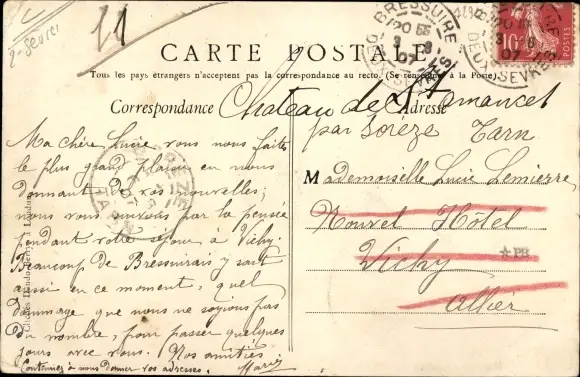 2-Sèvres
11
CARTE POSTALE
Tous les pays étrangers n'acceptent pas la correspondance au recto. (Se renseigner à la Poste)
Correspondance
Adresse
Ma chère Lucie, vous nous faites
le plus grand plaisir en nous
donnant de vos nouvelles;
nous vous suivons par la pensée
pendant votre séjour à Vichy.
Beaucoup de Bressuirais y sont
aussi en ce moment, quel
dommage que nous ne soyions pas
du nombre, pour passer quelques
jours avec vous. Nos amitiés
Marie
Continuez à nous donner vos adresses.
Château de St Amancet
par Sorèze Tarn
Mademoiselle Lucie Lemierre
Nouvel Hôtel
Vichy
Allier
PB
BRESSUIRE
DEUX-SEVRES
BRESSUIRE
DEUX-SEVRES
10
TARN